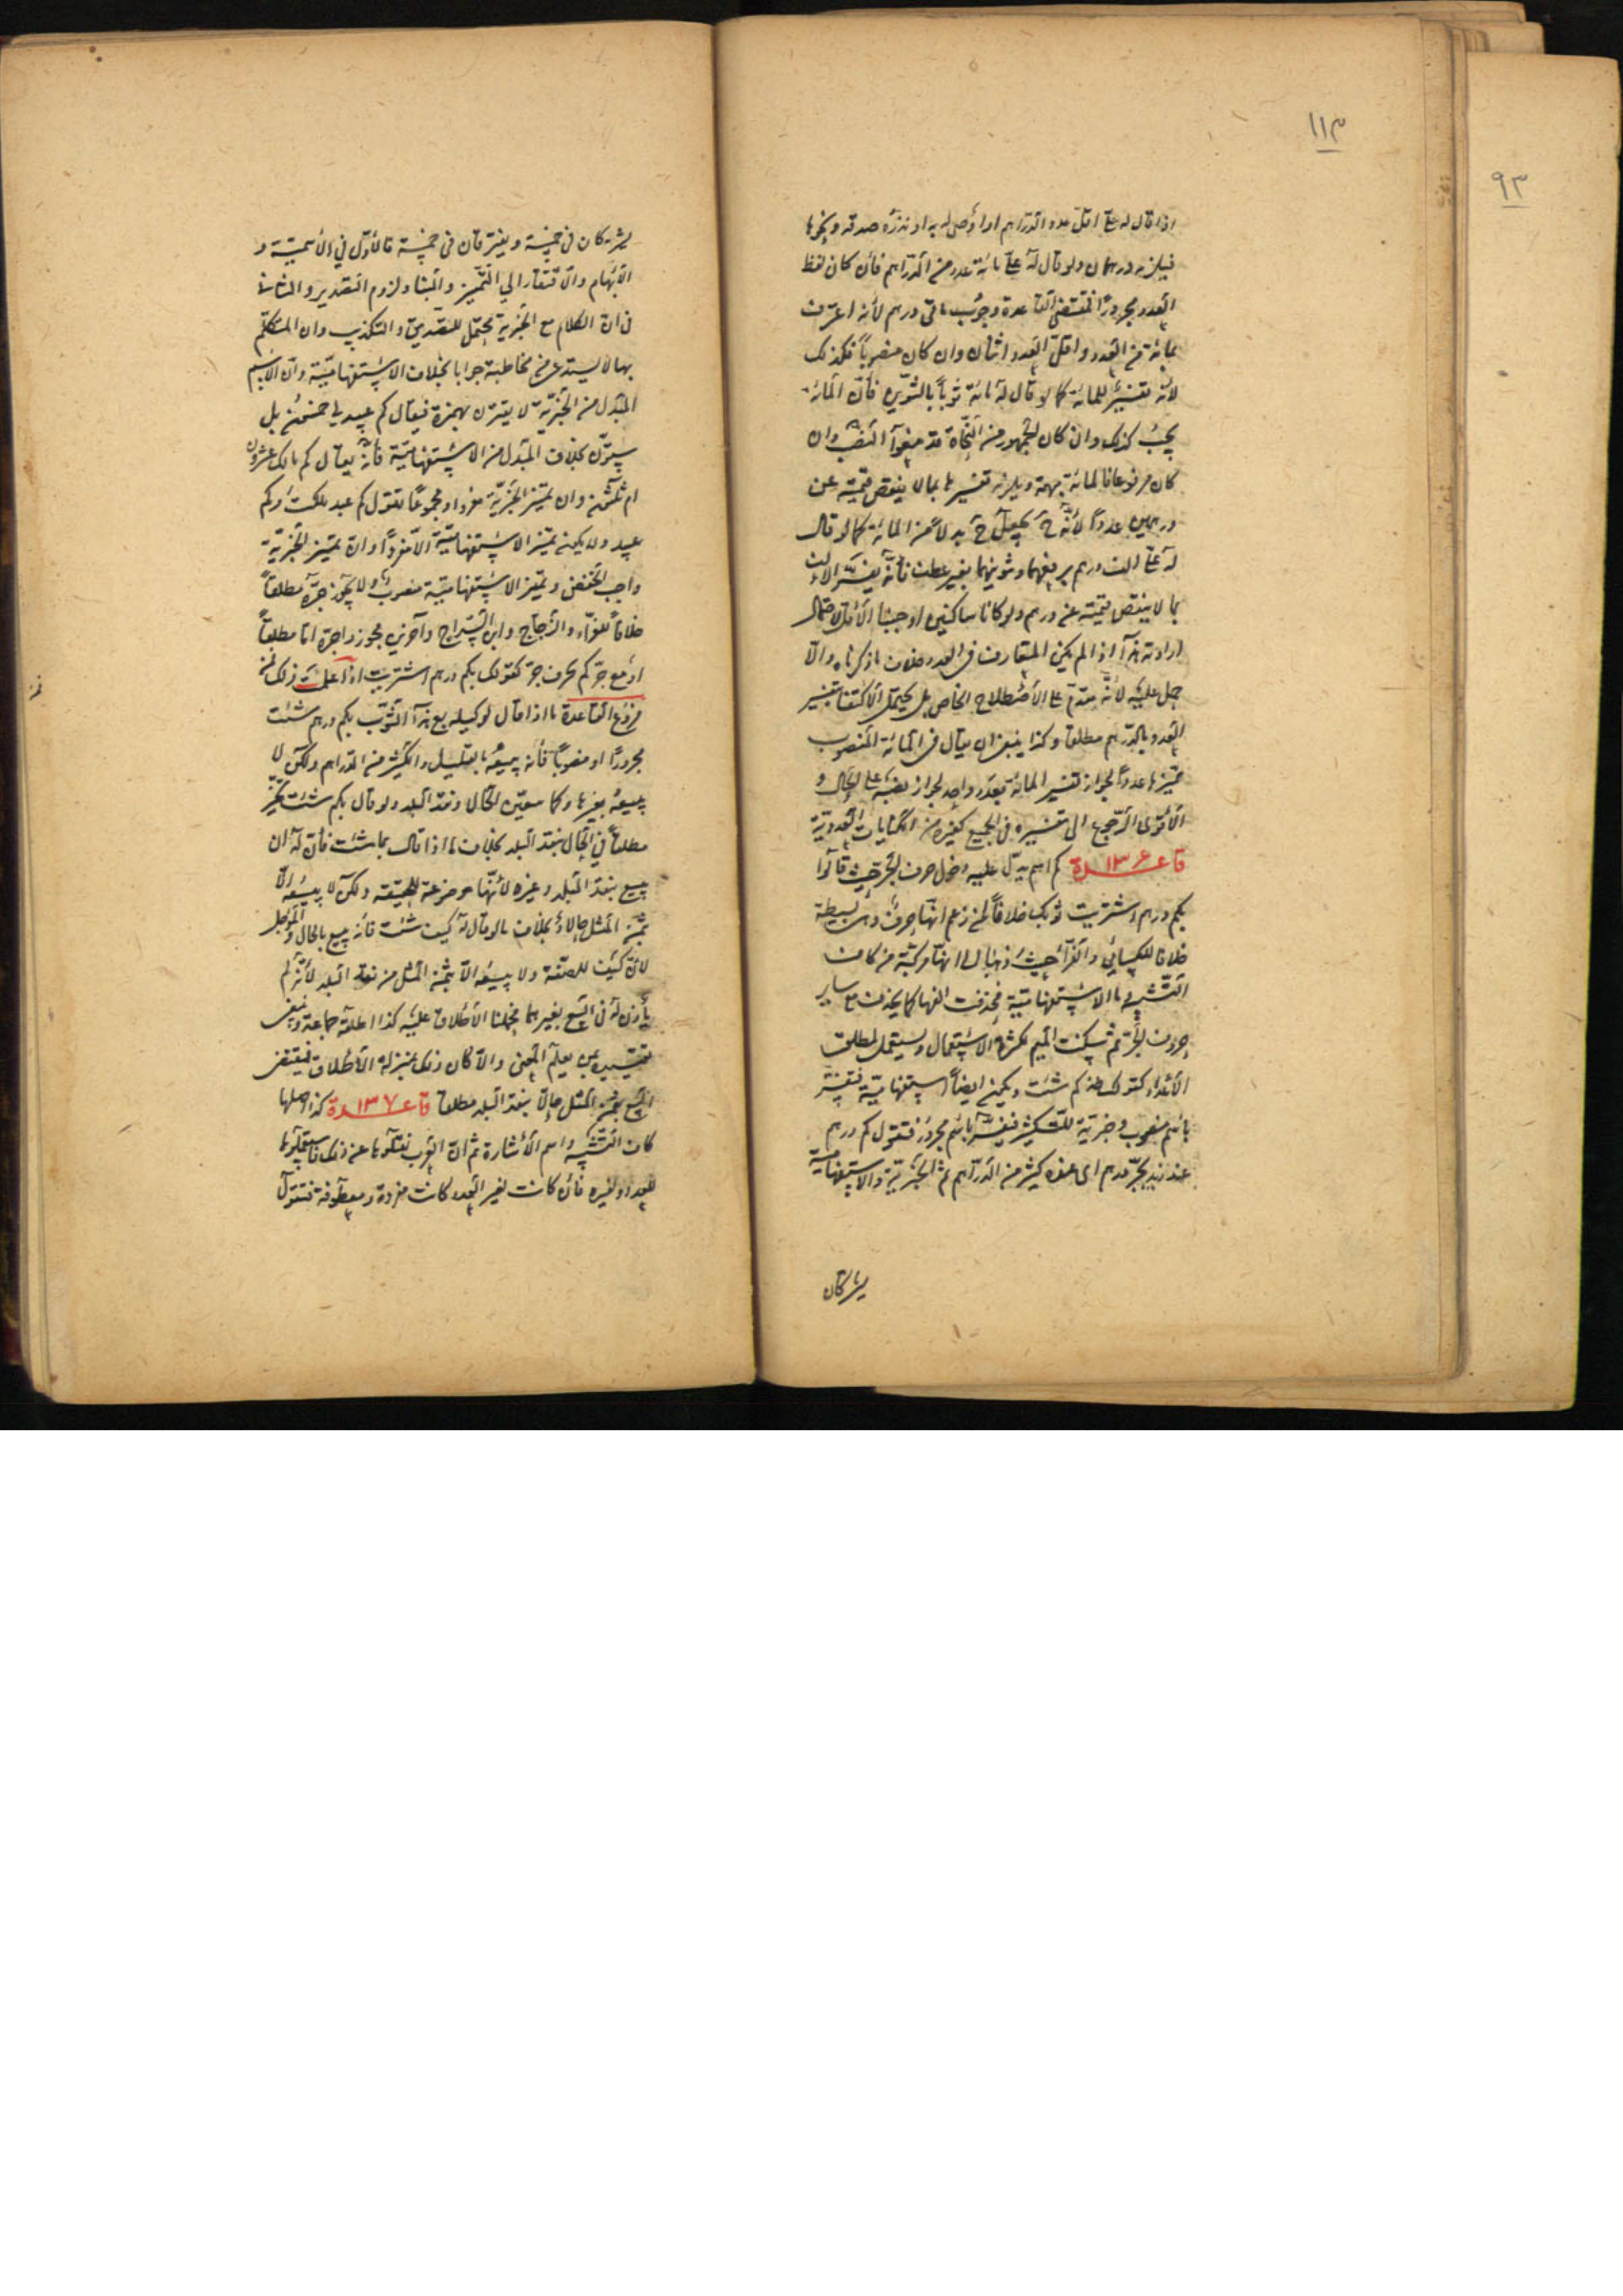 ١١٣
٩٣
اذا قال له علىّ اقل عدد الدراهم او اوصى له به او نذره صدقه ونحوها
فيلزمه درهمان ولو قال له علىّ مائة عدد من الدراهم فان كان لفظ
العدد مجرورًا فمقتضى القاعدة وجوب مائتى درهم لأنه اعترف
بمائة من العدد واقل العدد اثنان وان كان منصوباً فكذلك
لأنه تفسير للمائة كما لو قال له مائة ثوباً بالتنوين فان المائة
يجب كذلك وان كان الجمهور من النحاة قد منعوا النصب وان
كان مرفوعا فالمائة مبهمة ويلزمه تفسيرها بما لا ينقص قيمته عن
درهمين عدداً لأنه ح يجعل ح بدلاً من المائة كما لو قال
له علىّ الف درهم برفعهما وتنوينهما بغير عطف فانه يفسر الالف
بما لا ينقص قيمته عن درهم ولو كانا ساكنين اوجبنا الأقل لاحتمال
ارادته هذا اذا لم يكن المتعارف فى العدد خلاف ما ذكرناه والّا
حمل عليه لأنه مقدم على الأصطلاح الخاص بل يحتمل الاكتفا بتفسير
العدد بالدرهم مطلقا وكذا ينبغى ان يقال فى المائة المنصوب
تميزها عدداً لجواز تفسير المائة بعدد واحد لجواز نصبه على الحال و
الأقوى الرجوع الى تفسيره فى الجميع كغيره من الكنايات العددية
قاعدة ١٣٦ كم اسم يدل عليه دخول حرف الجر حيث قالوا
بكم درهم اشتريت ثوبك خلافاً لمن زعم انها حرف وهى بسيطة
خلافا للكسائي والفرّا حيث ذهبا الى انها مركبة من كاف
التشبيه وما الاستفهامية فحذفت الفها كما يحذف مع ساير
حروف الجر ثم سكنت الميم لكثرة الاستعمال ويستعمل لمطلق
الأعداد كقولك خذ كم شئت ويكون ايضاً استفهامية فتفسّر
باسم منصوب وخبرية للتكثير فيفسر باسم مجرور فتقول كم درهم
عند زيد بجر درهم اى عنده كثير من الدراهم ثم الخبرية والاستفهامية
يشتركان
يشتركان فى خمسة ويفترقان فى خمسة فالأول في الأسمية و
الأبهام والافتقار الي التميز والبنا ولزوم التصدير والثانى
فى ان الكلام مع الخبرية محتمل للتصديق والتكذيب وان المتكلم
بها لا يستدعى من مخاطبه جوابا بخلاف الاستفهامية وان الاسم
المبدل من الخبرية لا يقترن بهمزة فيقال كم عبيد لى خمسون بل
ستون بخلاف المبدل من الاستفهامية فانه يقال كم مالك عشرون
ام ثلثون وان تميز الخبرية مفرد او مجموعًا تقول كم عبد ملكت وكم
عبيد ولا يكون تميز الاستفهامية الّا مفردًا وان تميز الخبرية
واجب الخفض وتميز الاستفهامية منصوب ولا يجوز جره مطلقاً
خلافاً للفراء والزجاج وابن السراج وآخرين مجوز واجره اما مطلقاً
او مع جرّ كم بحرف جر كقولك بكم درهم اشتريت اذا علمت ذلك فمن
فروع القاعدة ما اذا قال لوكيله بع هذا الثوب بكم درهم شئت
مجرورًا او منصوبًا فانه يبيعه بالقليل والكثير من الدراهم ولكن لا
يبيعه بغيرها وكما معين الحال ونقد البلد ولو قال بكم شئت تخير
مطلقاً في الحال بنقد البلد بخلاف ما اذا قال بما شئت فان له ان
يبيع بنقد البلد وغيره لأنها موضوعة للحقيقه ولكن لا يبيعه الّا
بثمن المثل حالاً بخلاف ما لو قال له كيف شئت فانه يبيع بالحال والمؤجل
لان كيف للصفة ولا يبيعه الا بثمن المثل من نقد البلد لأنه لم
يأذن له فى البيع بغيرهما فيحملنا الأطلاق عليه كذا اطلقه جماعة وينبغى
تقييده بمن يعلم المعنى والّا كان ذلك بمنزلة الأطلاق فيقتضى
البيع بثمن المثل حالّا بنقد البلد مطلقا قاعدة ١٣٧ كذا اصلها
كاف التشبيه واسم الأشارة ثم ان العرب نقلوها عن ذلك فاستعملوها
للعدد ولغيره فان كانت لغير العدد كانت مفردة ومعطوفة فتقول